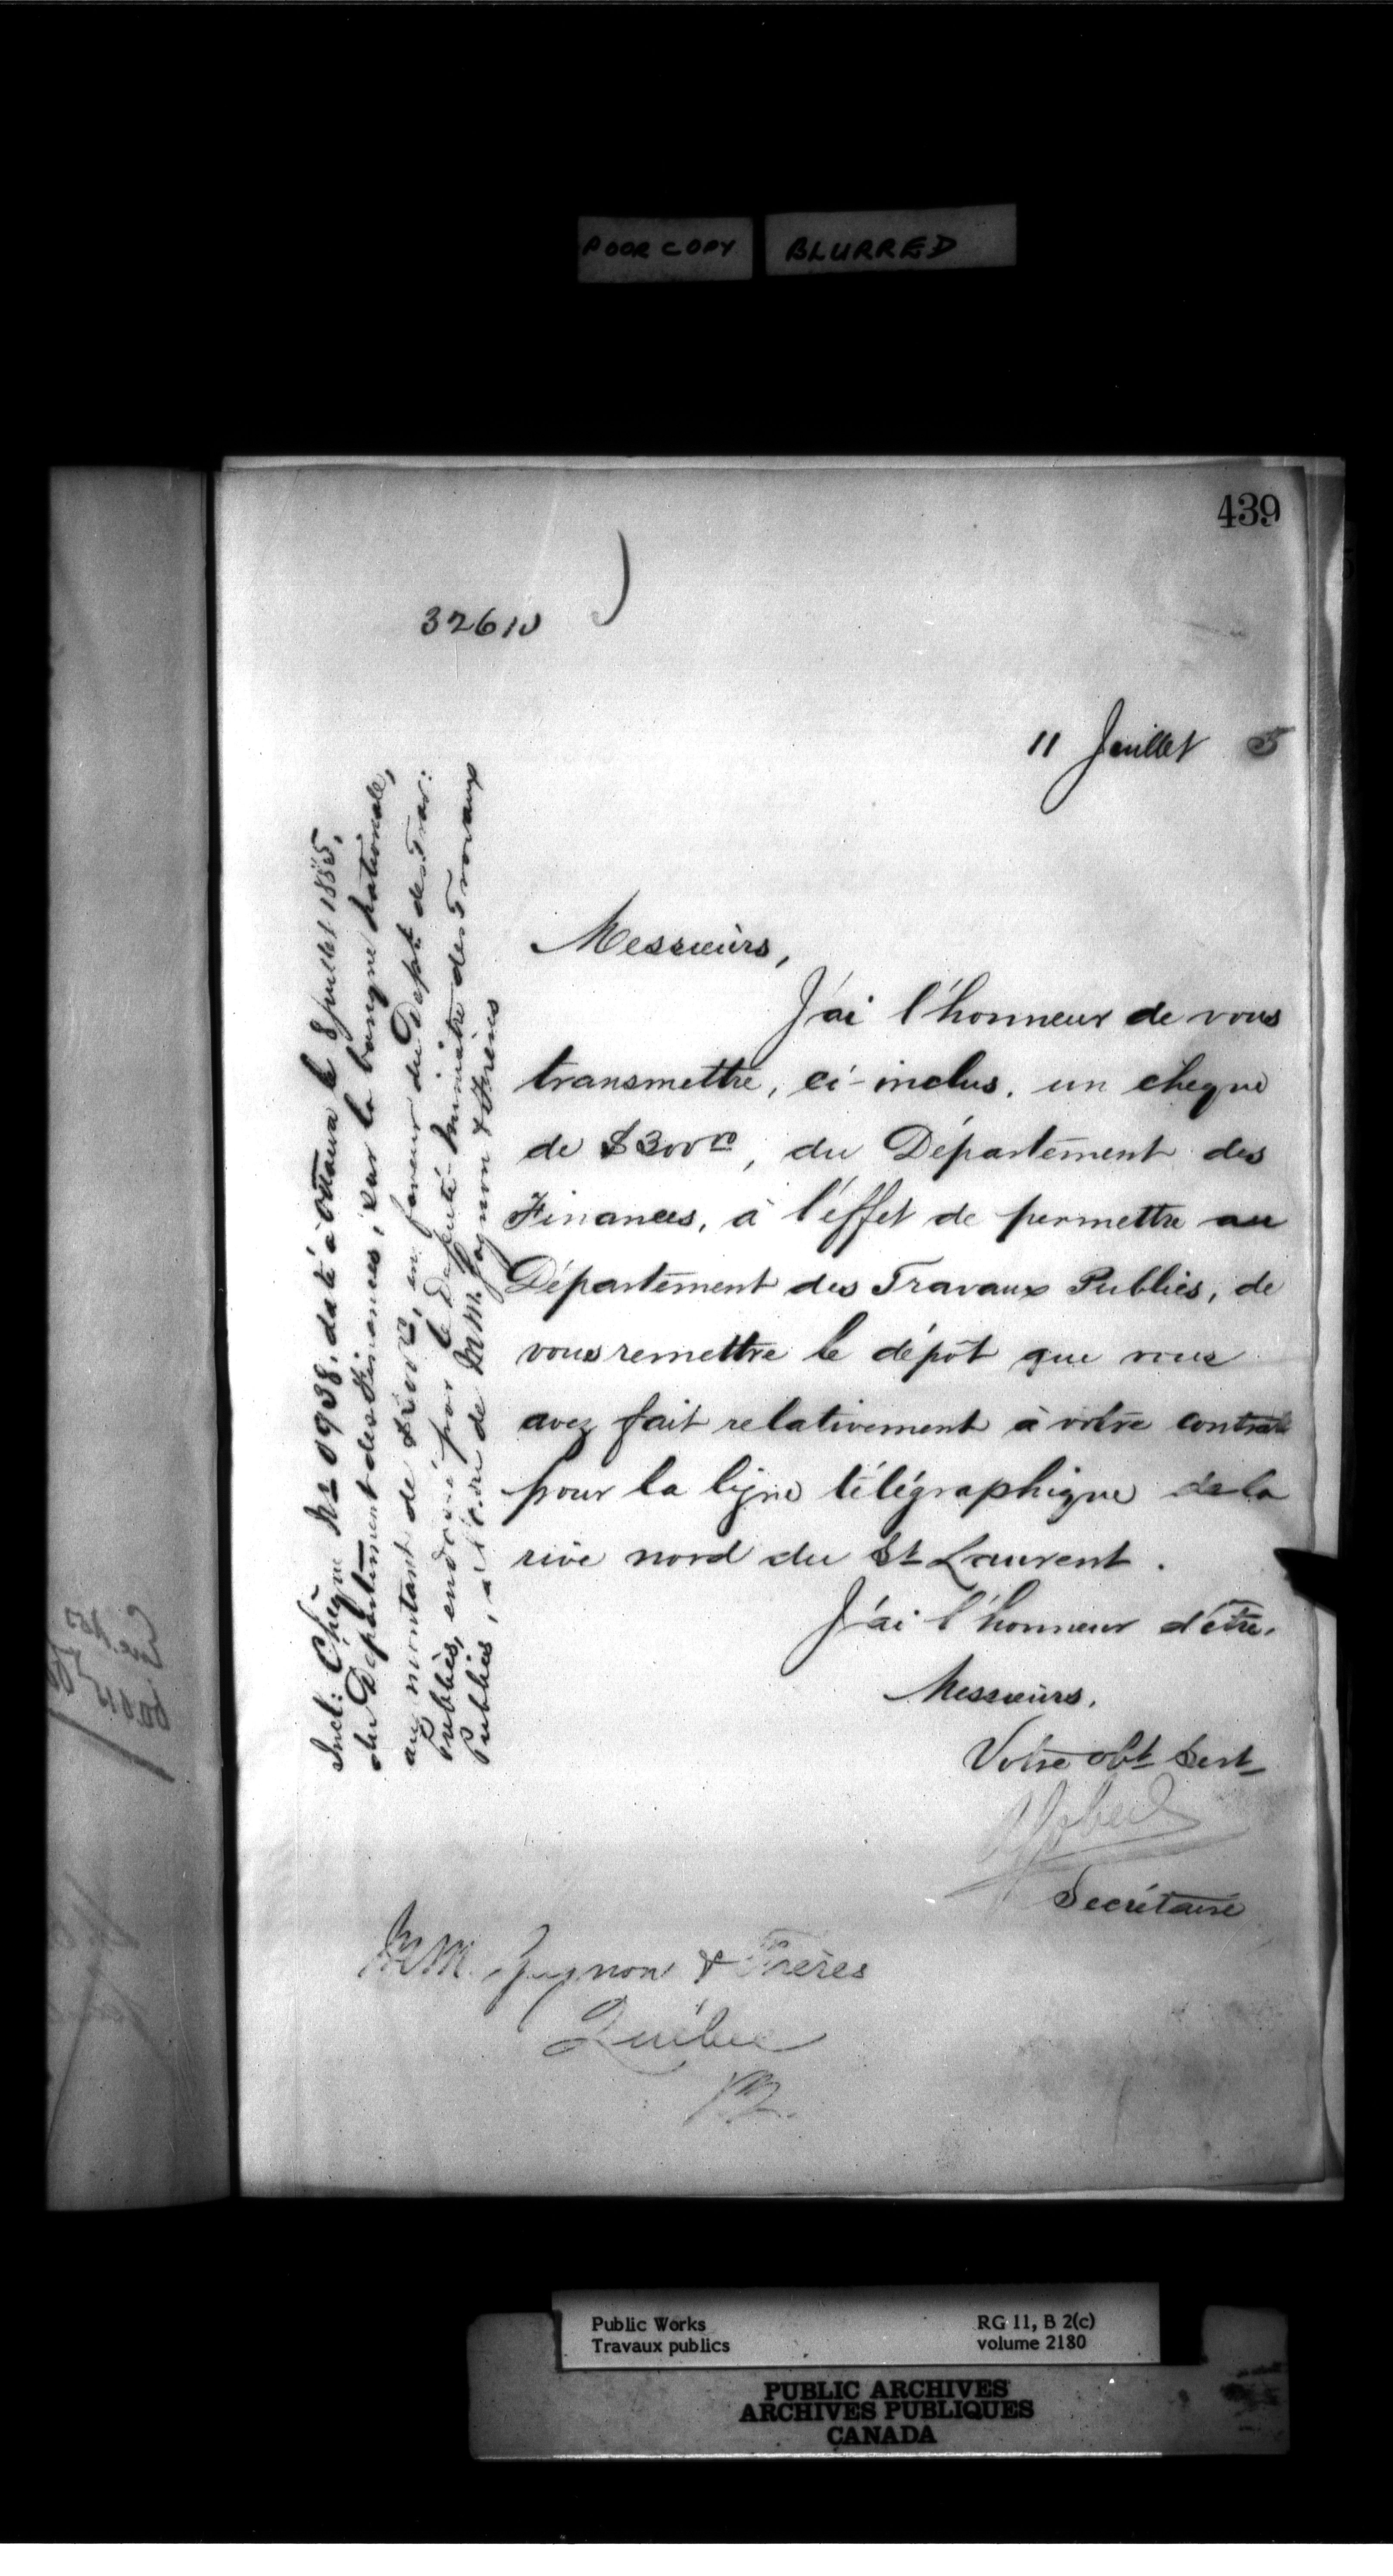 POOR COPY BLURRED
439
32610
11 Juillet 5
Messieurs,
J'ai l'honneur de vous
transmettre, ci-inclus, un cheque
de $300 00, du Département des
Finances, à l'effet de permettre au
Département des Travaux Publics, de
vous remettre le dépôt que vous
avez fait relativement à votre contrat
pour la ligne télégraphique de la
rive nord du St Laurent.
J'ai l'honneur d'être,
Messieurs,
Votre obt Sert
Secrétaire
MM. Gagnon & Frères
Québec
PQ.
Incl: Chèque No 20938, daté à Ottawa le 8 juillet 1885,
du Département des Finances, sur la banque Nationale,
au montant de $300 00, en faveur du Dept des Trav:
Publics, endossé par le Député Ministre des Travaux
Publics, à l'ordre de MM. Gagnon & Frères
Public Works RG 11, B 2(c)
Travaux publics volume 2180
PUBLIC ARCHIVES
ARCHIVES PUBLIQUES
CANADA